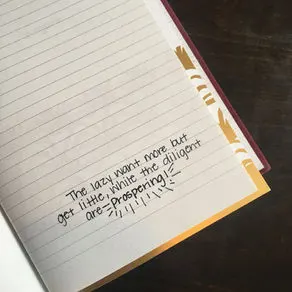 The lazy want more but
get little, while the diligent
are prospering!